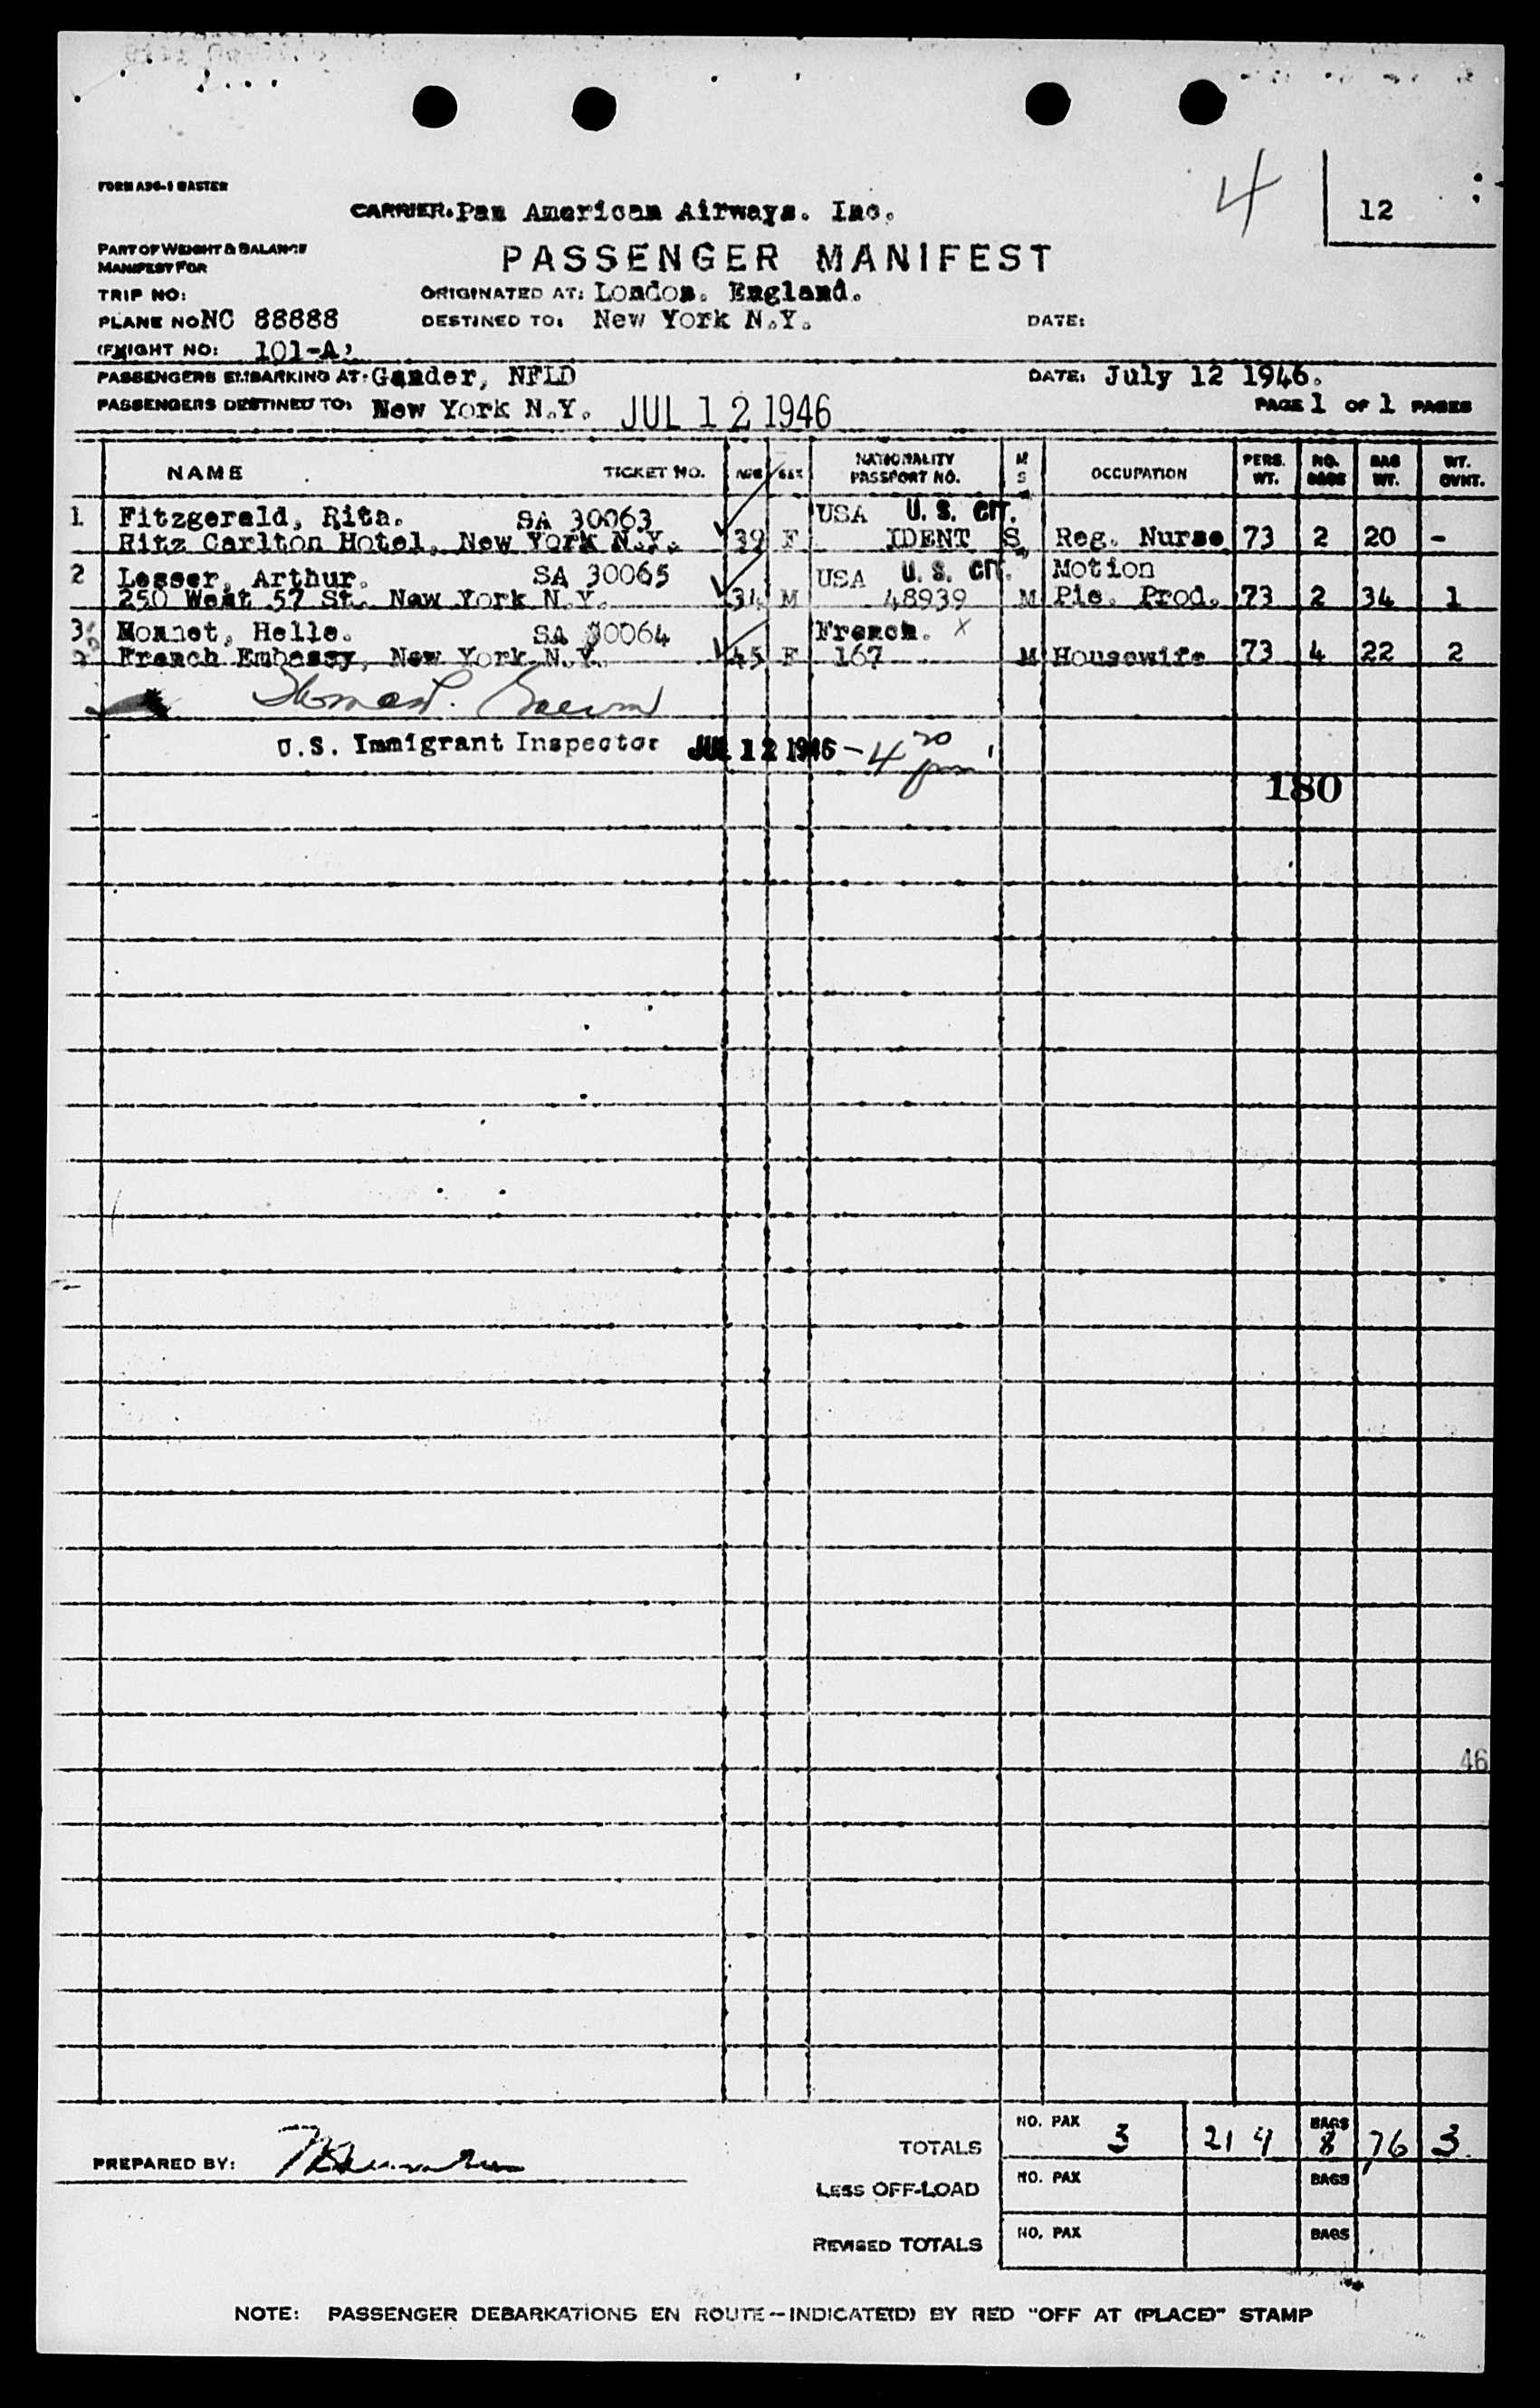 FORM A36-1 MASTER
4
12
CARRIER. Pan American Airways. Inc.
PART OF WEIGHT & BALANCE
MANIFEST FOR
PASSENGER MANIFEST
TRIP NO:
ORIGINATED AT: London. England.
PLANE NO NC 88888
DESTINED TO: New York N.Y.
DATE:
(FXIGHT NO: 101-A)
PASSENGERS EMBARKING AT: Gander, NFLD
DATE: July 12 1946.
PASSENGERS DESTINED TO: New York N.Y. JUL 12 1946
PAGE 1 OF 1 PAGES
NAME TICKET NO. AGE SEX NATIONALITY PASSPORT NO. M S OCCUPATION PERS. WT. NO. BAGS BAG WT. WT. OVNT.
1 Fitzgerald, Rita. SA 30063 USA U.S. CIT.
Ritz Carlton Hotel, New York N.Y. 39 F IDENT S Reg. Nurse 73 2 20 -
2 Lesser, Arthur. SA 30065 USA U.S. CIT. Motion
250 West 57 St. New York N.Y. 34 M 48939 M Pic. Prod. 73 2 34 1
3 Monnet, Helle. SA 30064 French. X
French Embassy, New York N.Y. 45 F 167 M Housewife 73 4 22 2
U.S. Immigrant Inspector JUL 12 1946 - 4 20 pm
180
46
TOTALS NO. PAX 3 219 BAGS 8 76 3
PREPARED BY:
LESS OFF-LOAD NO. PAX BAGS
REVISED TOTALS NO. PAX BAGS
NOTE: PASSENGER DEBARKATIONS EN ROUTE--INDICATE(D) BY RED "OFF AT (PLACE)" STAMP